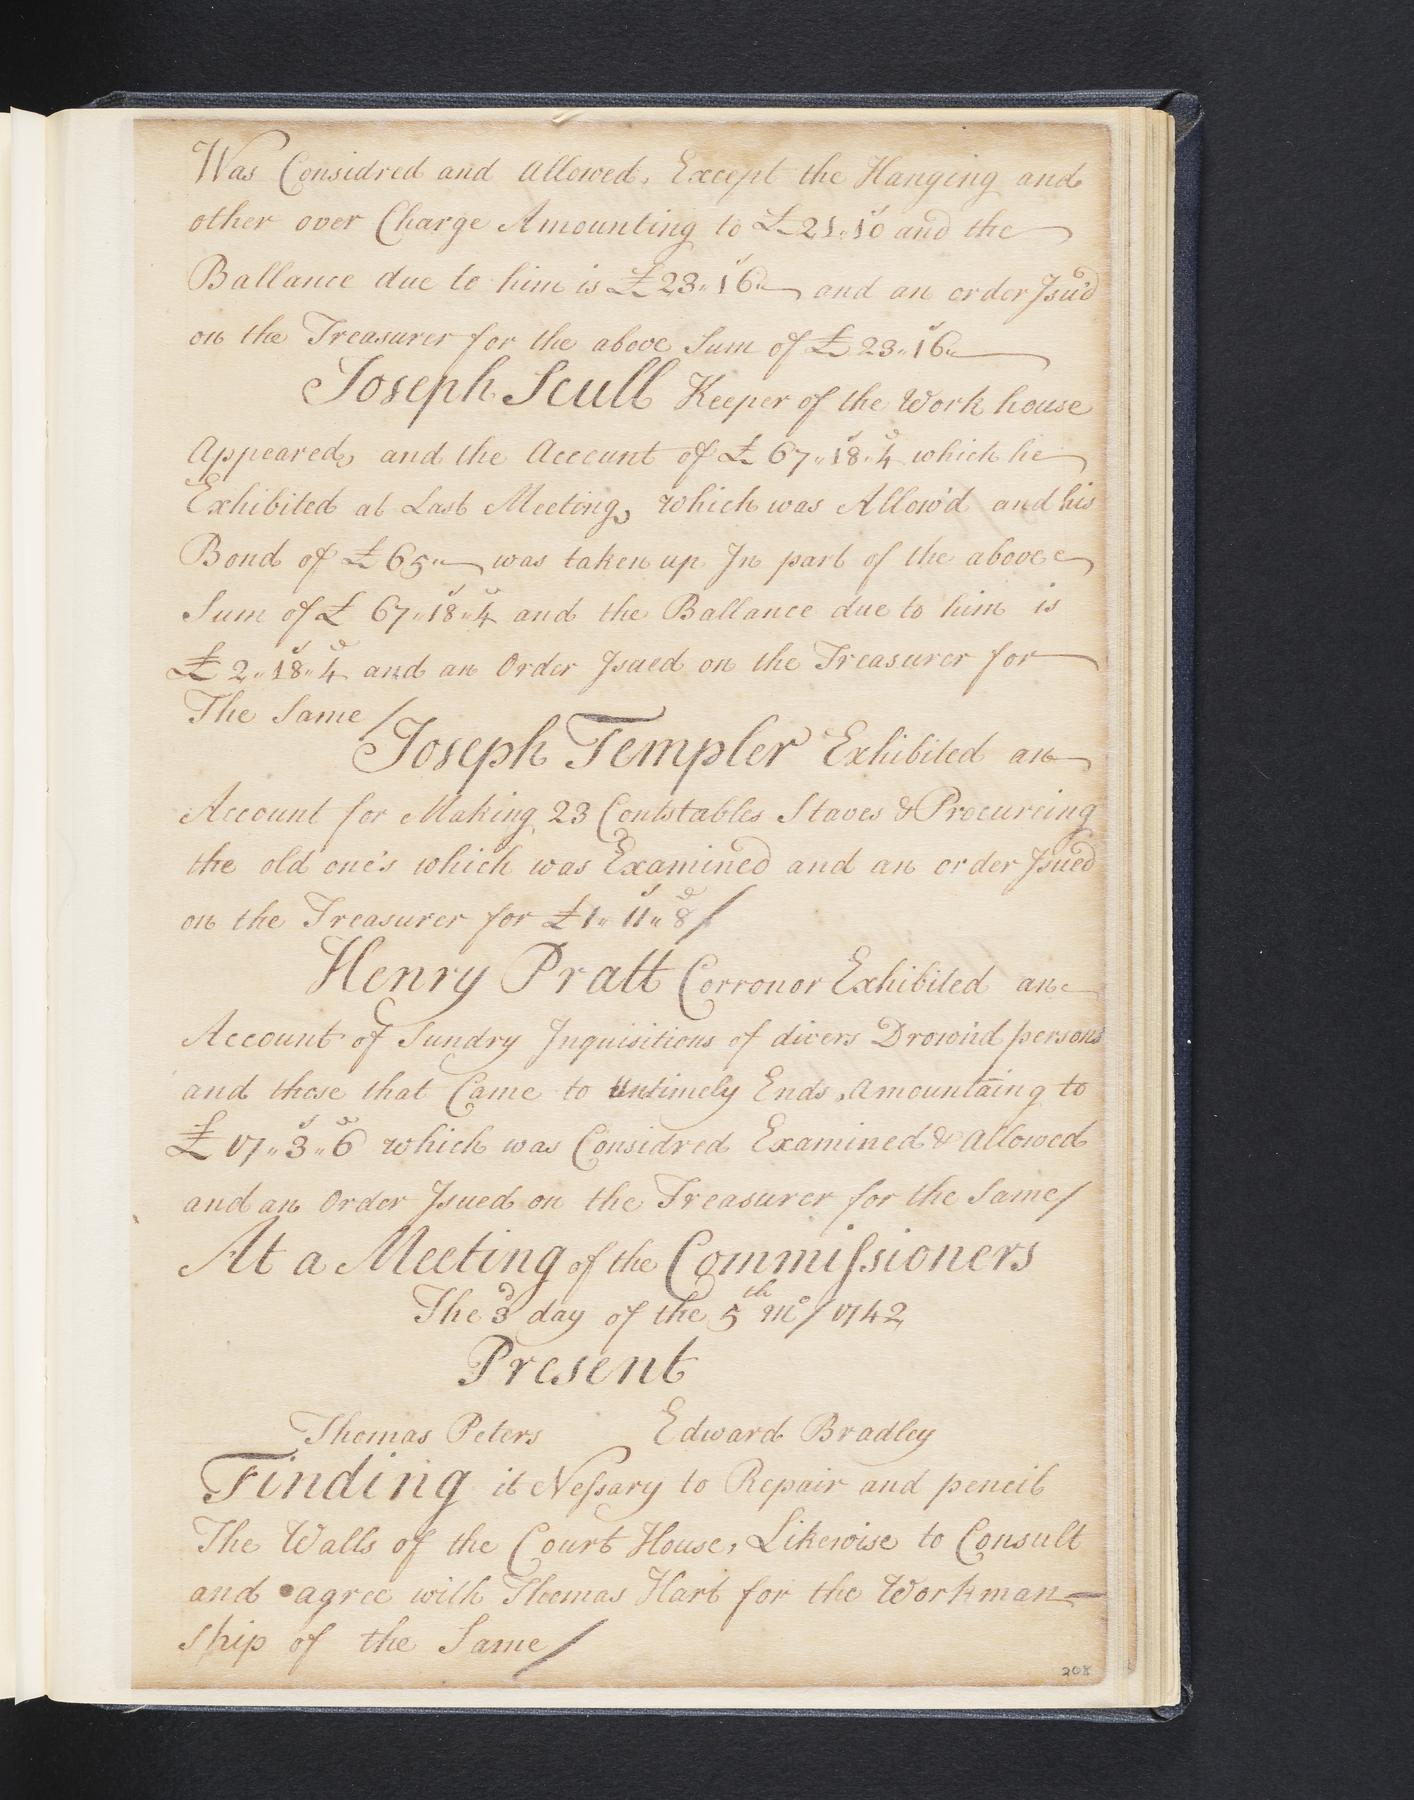 Was Considred and allowed, Except the Hanging and
other over Charge Amounting to £21„10ˢ and the
Ballance due to him is £23„16ˢ„ and an order Isu'd
on the Treasurer for the above Sum of £23„16ˢ„
Joseph Scull Keeper of the Work house
Appeared, and the Account of £67„18ˢ„4ᵈ which he
Exhibited at Last Meeting, which was Allow'd and his
Bond of £65„ was taken up In part of the above
Sum of £67„18ˢ„4ᵈ and the Ballance due to him is
£2„18ˢ„4ᵈ and an Order Isued on the Treasurer for
The Same/
Joseph Templer Exhibited an
Account for Making 23 Contstables Staves & Procureing
the old one's which was Examined and an order Isued
on the Treasurer for £1„11ˢ„8ᵈ/
Henry Pratt Corronor Exhibited an
Account of Sundry Inquisitions of divers Drown'd persons
and those that Came to Untimely Ends, Amountaing to
£17„3ˢ„6ᵈ which was Considred Examined & allowed
and an Order Isued on the Treasurer for the Same/
At a Meeting of the Commiſsioners
The 3ᵈ day of the 5ᵗʰ mᵒ/1742
Present
Thomas Peters Edward Bradley
Finding it Neſsary to Repair and pencil
The Walls of the Court House, Likewise to Consult
and agree with Thomas Hart for the Workman-
ship of the Same/
208